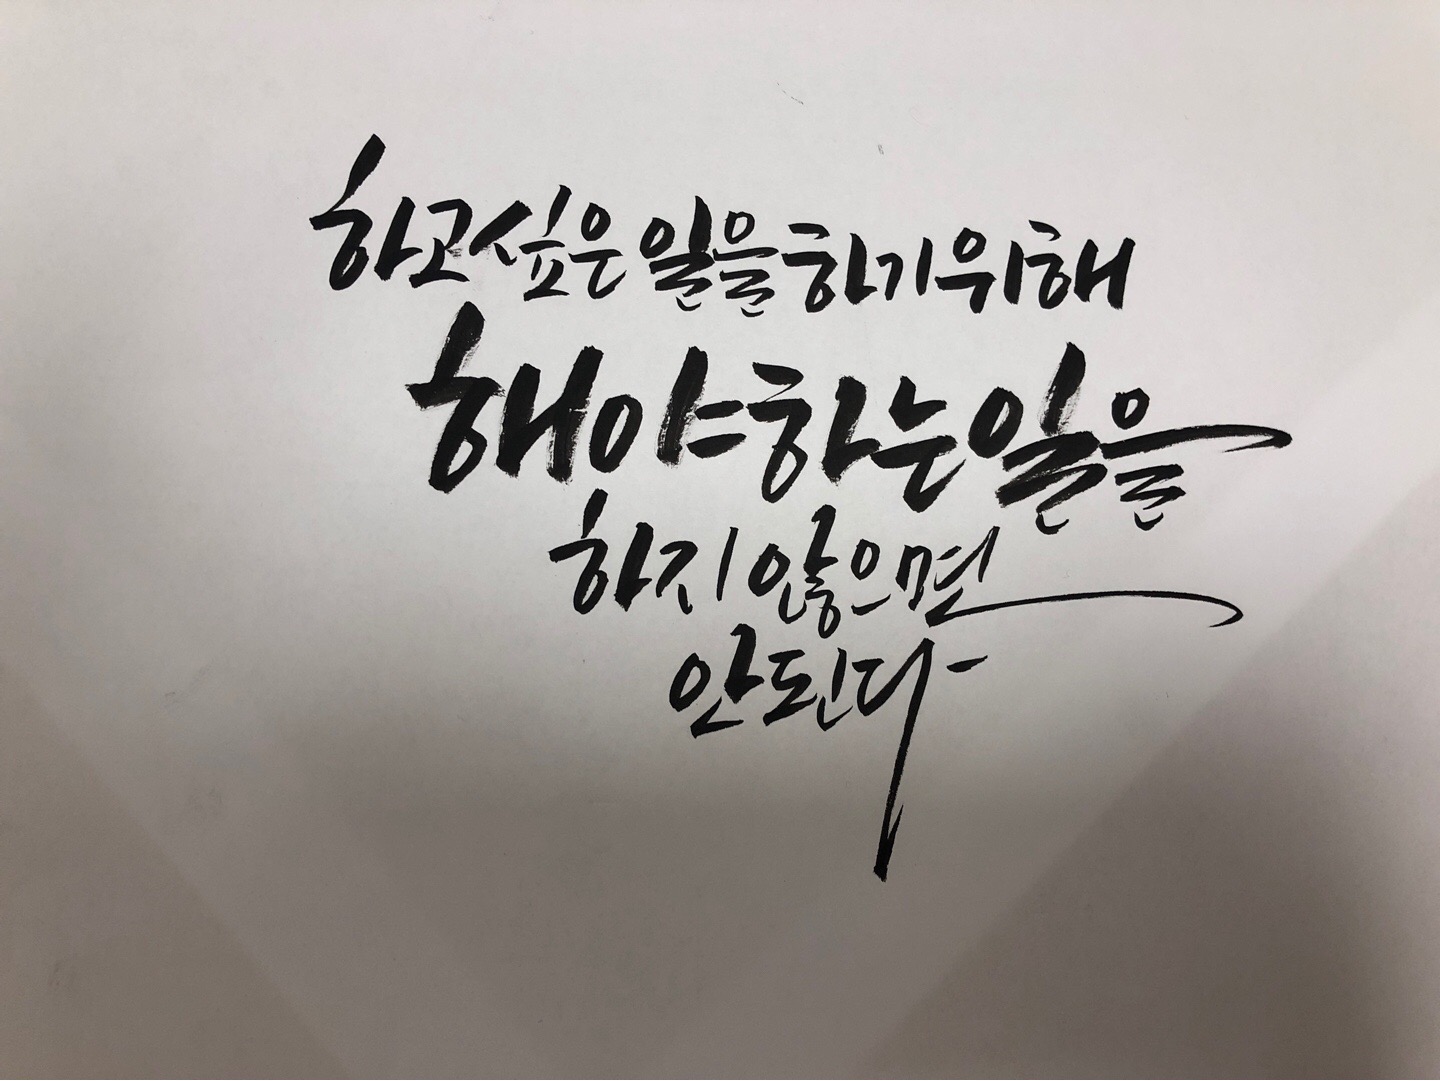 하고싶은 일을 하기위해
해야하는일을
하지 않으면
안된다